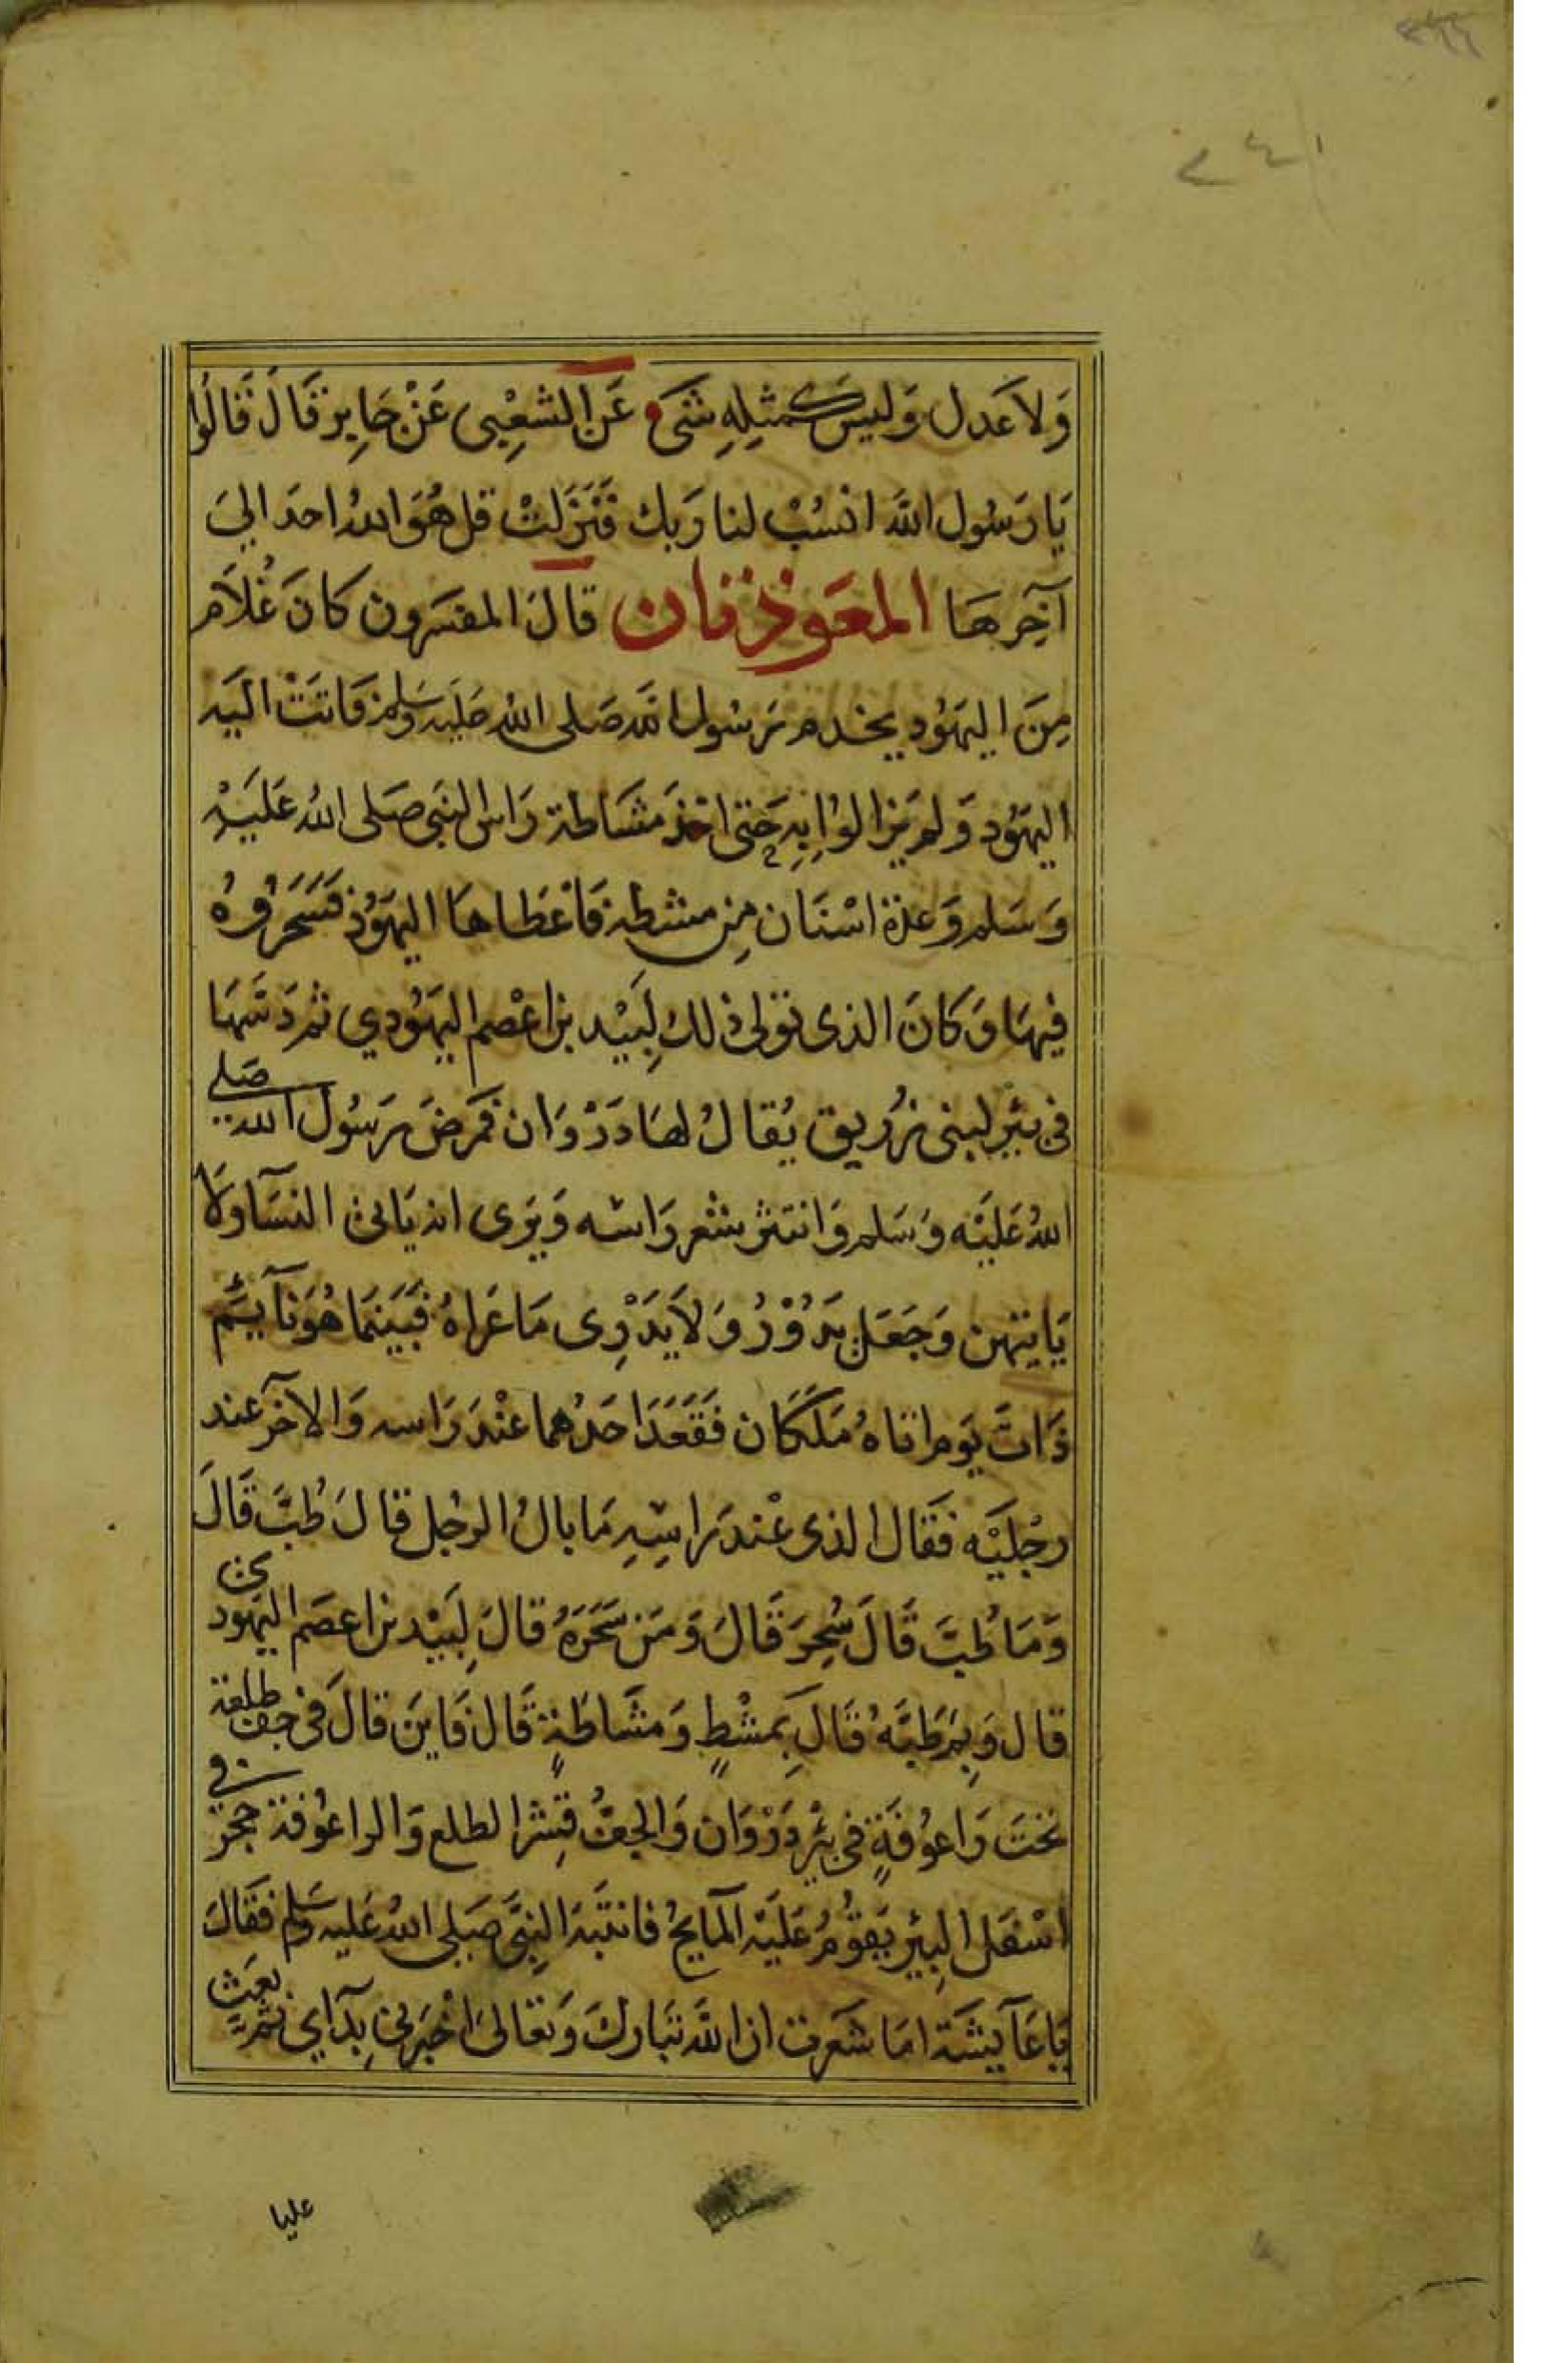 ٢٤١
وَلاَ عَدل وَليسَ كمثلِهِ شَىء عَنِ الشعِبى عَنْ جَابِر قَالَ قَالُوا
يَا رَسُول اللَّه انسُبْ لنا رَبك فَنَزَلَتْ قل هُوَ اللهُ احد الىَ
آخِرِهَا المعَوذتان قالَ المفسَرون كانَ غُلاَم
مِنَ اليهَوُد يخدم رَسُول اللَّه صَلى اللهُ عَليه وسَلم فَاتَتْ اليَه
اليهَوُد وَلم يَزالوُا بِهِ حَتى اخذ مشَاطة رَاس النبَى صَلى اللهُ عَليَهْ
وَسَلم وَعدة اسْنَان مِن مشطه فَاعْطاهَا اليهَوُد فَسَحَرُوُهُ
فيهَا وَكانَ الذى تولى ذلك لِبَيْد بن اعْصم اليهَوُدي ثم دَسَّهَا
فى بئر لبنى زرُيق يُقالُ لهَا دَرْوَان فمَرضَ رَسُول الله صَلى
اللهُ عَليَه وَسَلم وَانتثر شعر رَاسه وَيرَى انه يَاتى النسَآ وَلا
يَاتيهن وَجَعَل يَدُوْرُ وَلاَ يَدْرِى مَا عَراهُ فَبَيَنمَا هُوَ نآيئم
ذَاتَ يَوم اتاهُ مَلَكَان فَقَعَدَ احَدُهما عنْدَ رَاسه وَالآخر عند
رجْليَه فَقَال الذى عنْد رَاسِهِ مَا بالُ الرجُل قالَ طُبَّ قَالَ
وَمَا طُبَّ قَالَ سُحِرَ قَالَ وَمَن سَحَرَهُ قالَ لِبَيْد بن اعصَم اليهَودى
قال وَبِمَ طَبَّهُ قَالَ بِمشْطٍ وَمشَاطَةٍ قَالَ فَاينَ قالَ فى جف طلعة
تحَتَ رَاعوُفَةٍ فى بئر دَرْوَان وَالجفُّ قِشر الطلع وَالراعوُفة حجر فى
اسْفَل البئِر يَقوُمُ عَليَه المآيحُ فانتَبَهَ النِبَّى صَلى اللهُ عَليه وسَلم فَقَالَ
يَا عَآيشَة امَا شَعَرت ان اللَّه تبَاركَ وَتعَالىَ اخْبَرنى بِدَآى ثم بعَث
عليا